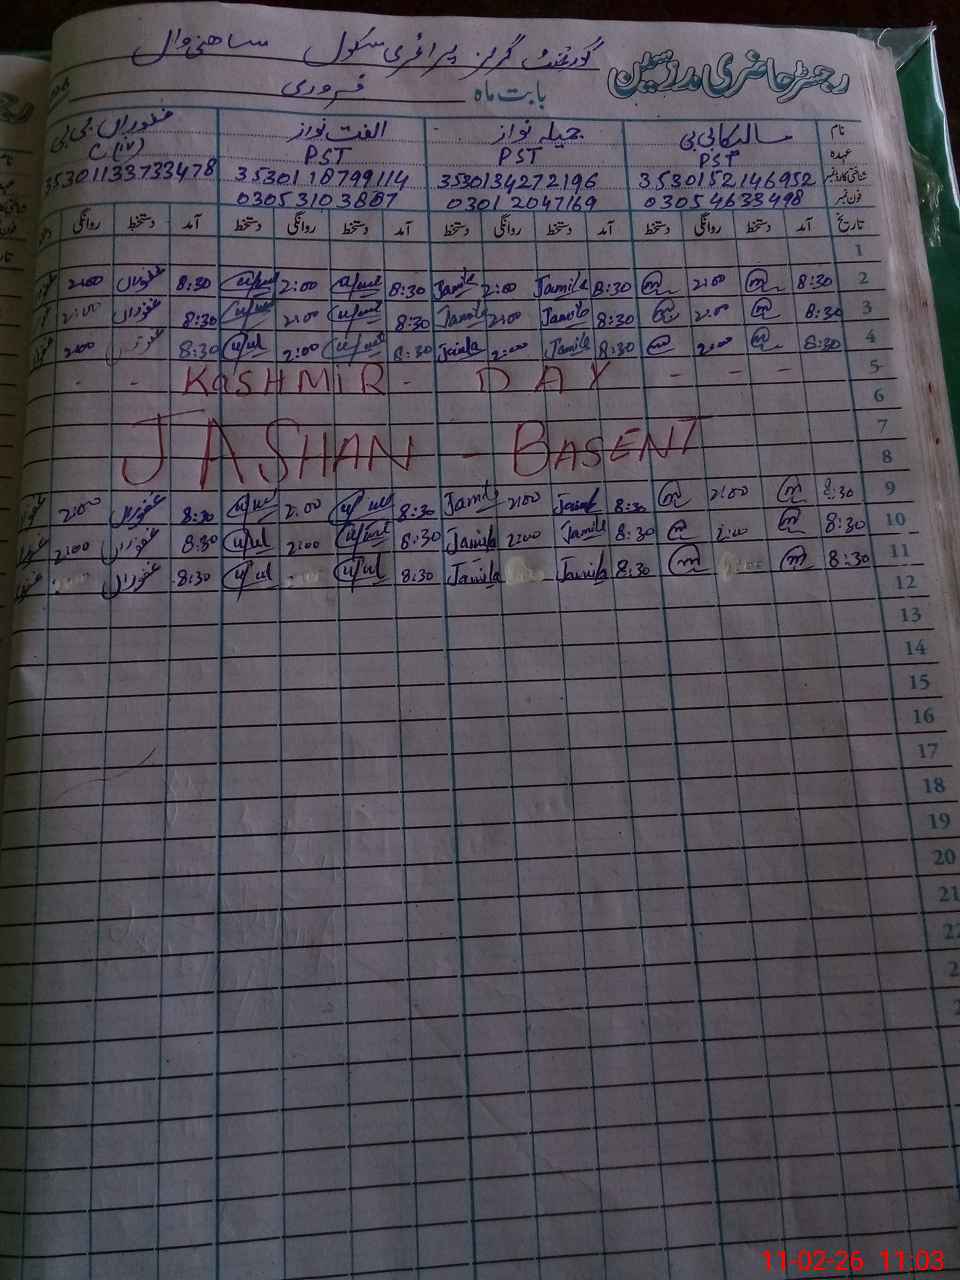 رجسٹر حاضری مدرسین گورنمنٹ گرلز پرائمری سکول ساھنی وال
بابت ماہ فروری
نام سالکا بی بی جمیلہ نواز الفت نواز غفوراں بی بی
عہدہ PST PST PST C (iv)
شناختی کارڈ نمبر 3530152146952 3530134272196 3530118799114 35301133733478
فون نمبر 03054633498 03012047169 03053103887
تاریخ آمد دستخط روانگی دستخط آمد دستخط روانگی دستخط آمد دستخط روانگی دستخط آمد دستخط روانگی
1
2 8:30 2:00 8:30 Jamila 2:00 Jamila 8:30 2:00 8:30 غفوراں 2:00
3 8:30 2:00 8:30 Jamila 2:00 Jamila 8:30 2:00 8:30 غفوراں 2:00
4 8:30 2:00 8:30 Jamila 2:00 Jamila 8:30 2:00 8:30 غفوراں 2:00
5 - - KASHMIR - DAY - - -
6
7 JASHAN - BASENT
8
9 8:30 2:00 8:30 Jamila 2:00 Jamila 8:30 2:00 8:30 غفوراں 2:00
10 8:30 2:00 8:30 Jamila 2:00 Jamila 8:30 2:00 8:30 غفوراں 2:00
11 8:30 8:30 Jamila Jamila 8:30 8:30 غفوراں
12
13
14
15
16
17
18
19
20
21
22
11-02-26 11:03